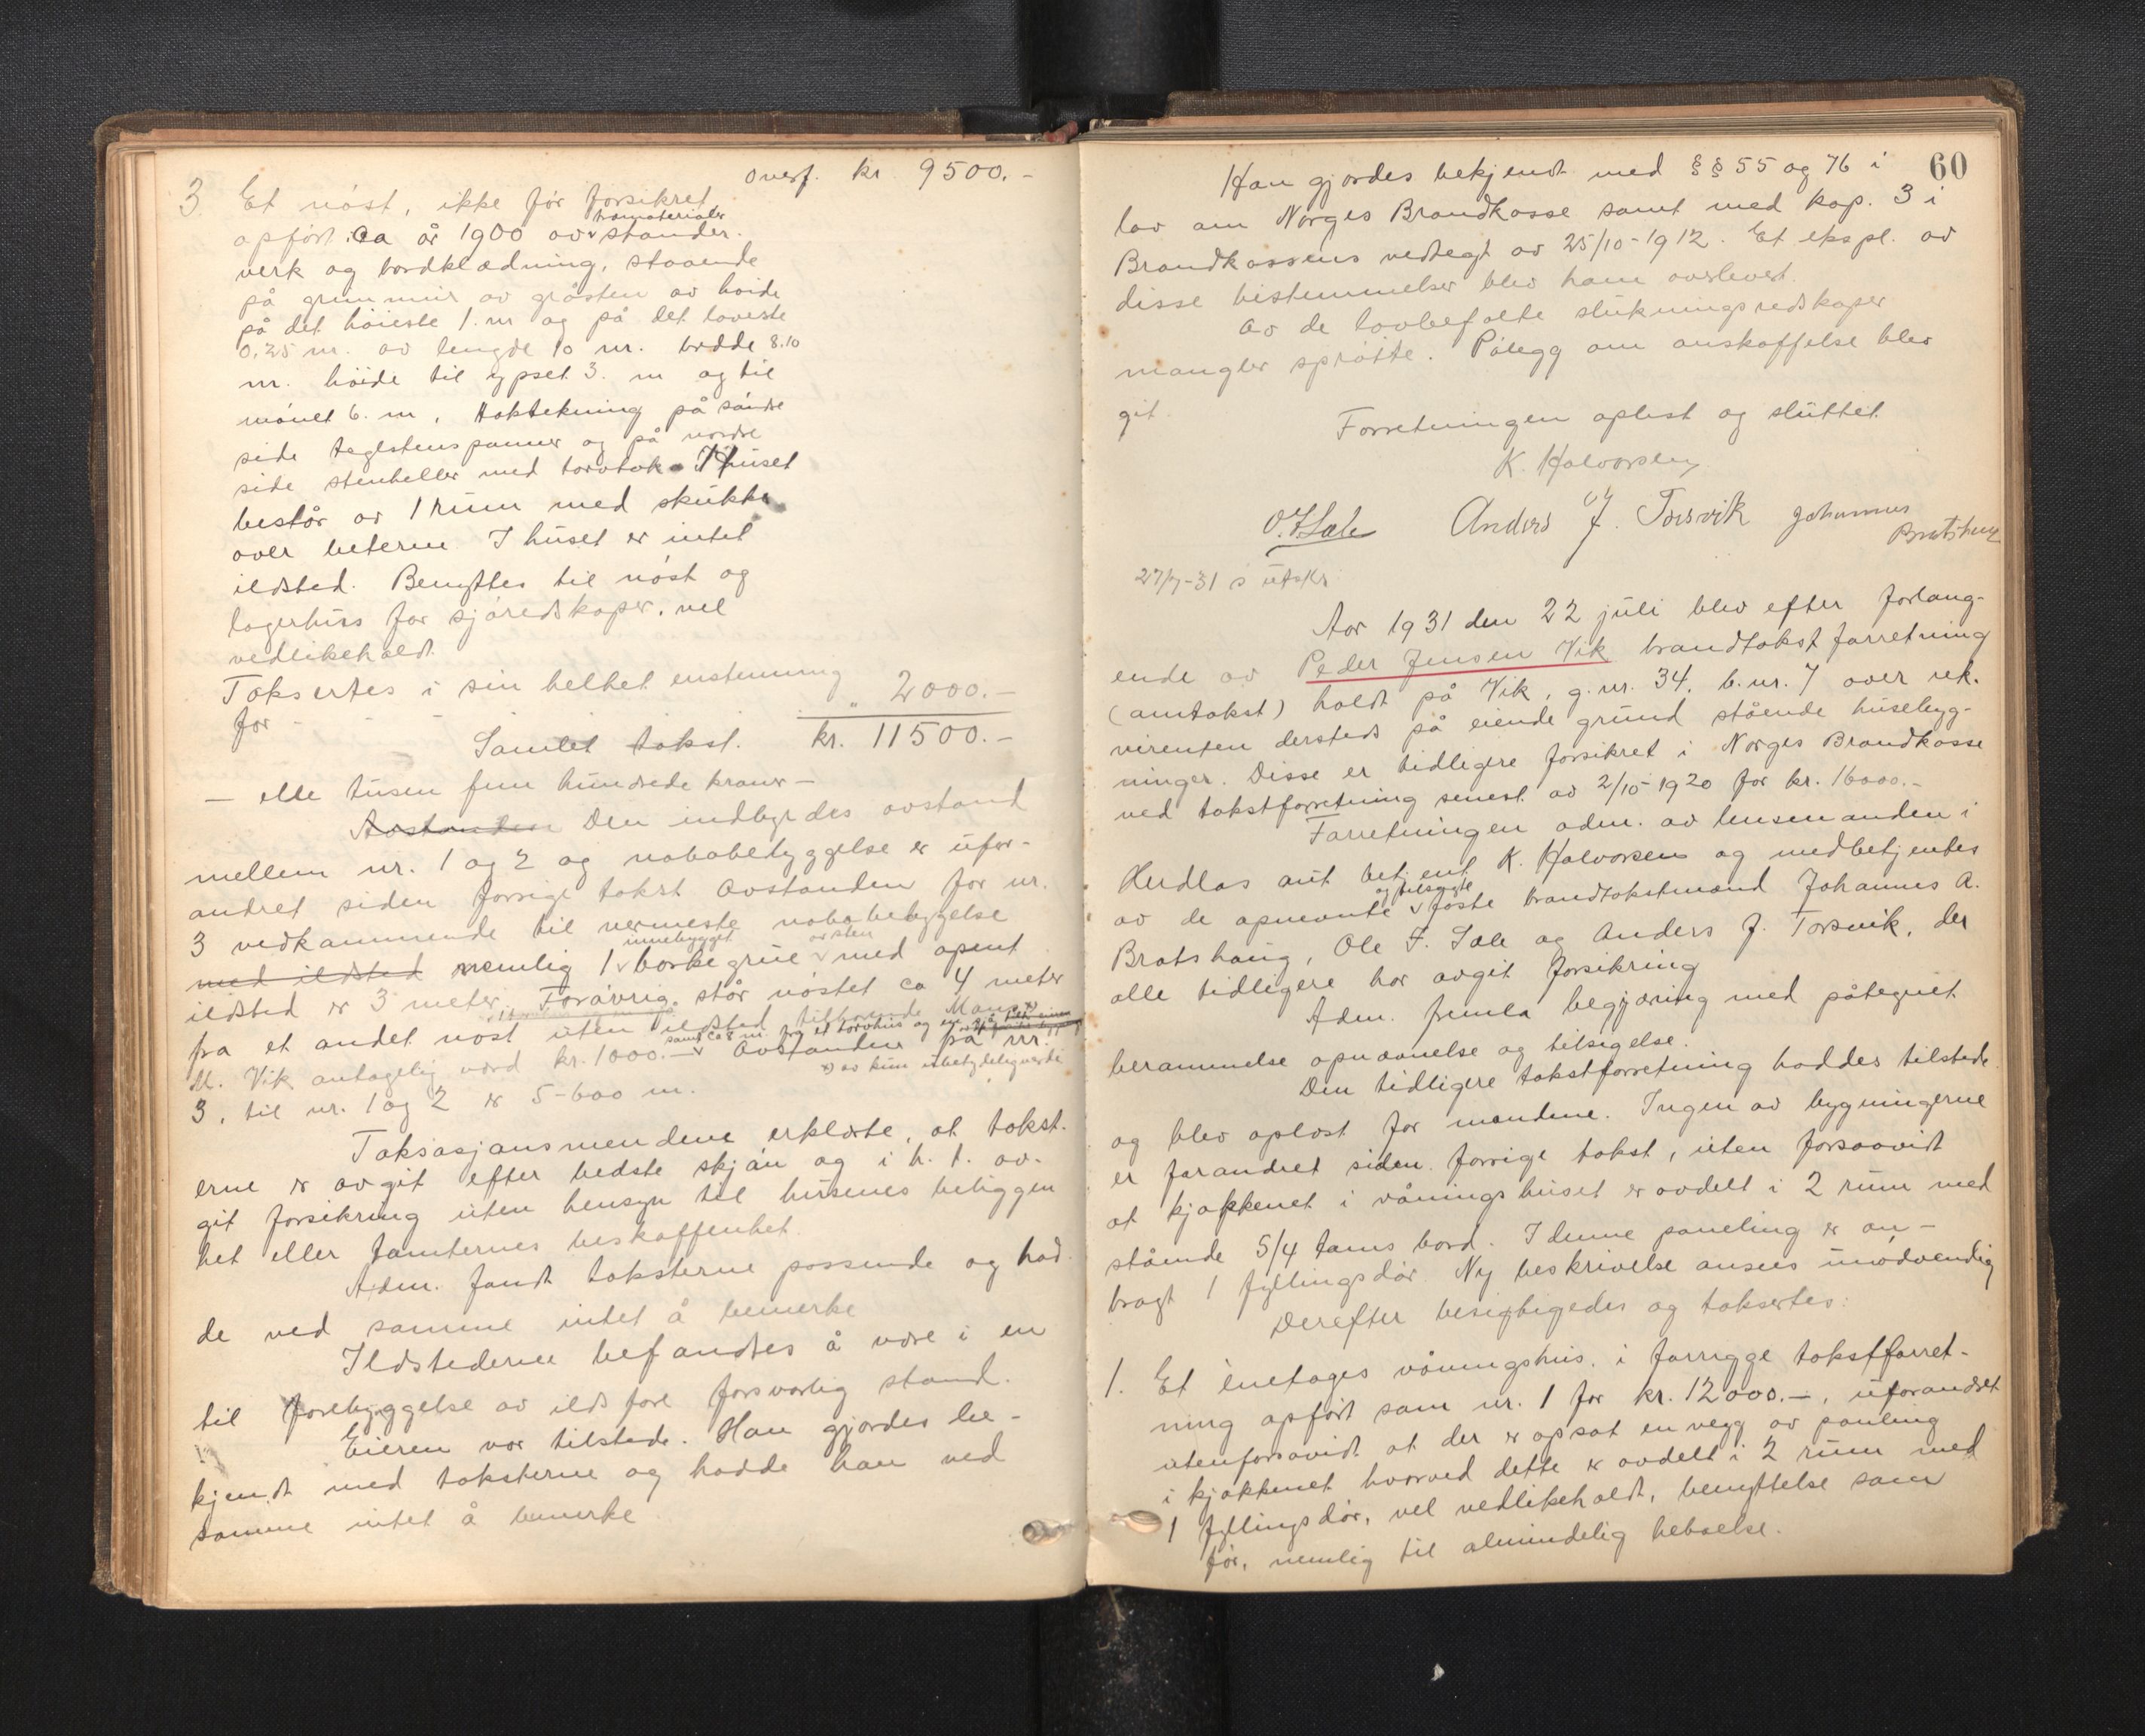 overf. kr. 9500.-
3. Et nøst, ikke før forsikret
tramaterialer
opført ca år 1900 av stander-
verk og bordklædning, staaende
på grunmur av gråsten av høide
på det høieste 1. m og på det laveste
0,25 m. av lengde 10 m. bredde 8.10
m. høide til gpset 3. m og til
mønet 6. m, taktekning på søndre
side teglstenspanner og på nordre
side stenheller med torvtak. Huset
består av 1 rum med skukke
over beterne. I huset er intet
ildsted. Benyttes til nøst og
lagerhus for sjøredskaper, vel
vedlikeholdt.
Taksertes i sin helhet enstemmig
for - - - " 2000.-
Samlet takst. kr. 11500.-
- elle tusen fem hundrede kroner -
Avstanden Den indbyrdes avstand
mellem nr. 1 og 2 og nabobebyggelse er ufor-
andret siden forrige takst Avstanden for nr.
3 vedkommende til nermeste nabobebyggelse
innebygget av sten
med ildsted nemlig 1 borkegrue med apent
ildsted er 3 meter. Forøvrig står nøstet ca 4 meter
fra et andet nøst uten ildsted tilhørende Mons
samt ca 8 m. fra et torvhus og en
M. Vik antagelig værd kr. 1000.- Avstanden fra nr.
x) av kun ubetydelig verdi
3, til nr. 1 og 2 er 5-600 m.
Taksasjonsmendene erklærte, at takst-
erne er avgit efter bedste skjøn og i h. t. av-
git forsikring uten hensyn til husenes beliggen
het eller tomternes beskaffenhet.
Adm. fandt taksterne passende og had
de ved samme intet å bemerke
Ildstederne befandtes å være i en
til forebyggelse av ildsfare forsvarlig stand.
Eieren var tilstede. Han gjordes be-
kjendt med taksterne og hadde han ved
samme intet å bemerke
60
Han gjordes bekjendt med §§ 55 og 76 i
lov om Norges Brandkasse samt med kap. 3 i
Brandkassens vedtegt av 25/10-1912. Et ekspl. av
disse bestemmelser blev ham overlevert.
Av de lovbefalte slukningsredskaper
mangler sprøite. Pålegg om anskaffelse blev
git.
Forretningen oplest og sluttet
K. Halvorsen
O. F. Sæle Anders J. Torsvik Johannes
Bratshaug
27/7-31 s utskr.
Aar 1931 den 22 juli blev efter forlang-
ende av Peder Jensen Vik brandtakstforretning
(omtakst) holdt på Vik, g. nr. 34, b. nr. 7 over rek-
virenten dersteds på eiende grund stående husebyg-
ninger. Disse er tidligere forsikret i Norges Brandkasse
ved takstforretning senest av 2/10-1920 for kr. 16000.-
Forretningen adm. av lensmanden i
Herdlas aut. betjent K. Halvorsen og medbetjentes
og tilsagte
av de opnevnte faste brandtakstmænd Johannes A.
Bratshaug, Ole F. Sæle og Anders J. Torsvik, der
alle tidligere har avgit forsikring
Adm. fremla begjæring med påtegnet
berammelse opnævnelse og tilsigelse.
Den tidligere takstforretning haddes tilstede
og blev oplæst for mændene. Ingen av bygningerne
er forandret siden forrige takst, uten forsaavidt
at kjøkkenet i våningshuset er avdelt i 2 rum med
stående 5/4 toms bord. I denne paneling er an-
bragt 1 fyllingsdør. Ny beskrivelse ansees unødvendig
Derefter besigtigedes og taksertes:
1. Et enetages våningshus, i forrigge takstforret-
ning opført som nr. 1 for kr. 12000.-, uforandret
utenforsavidt at der er opsat en vegg av panling
i kjøkkenet hvorved dette er avdelt i 2 rum med
1 fyllingsdør, vel vedlikeholdt, benyttelse som
før, nemlig til almindelig beboelse.